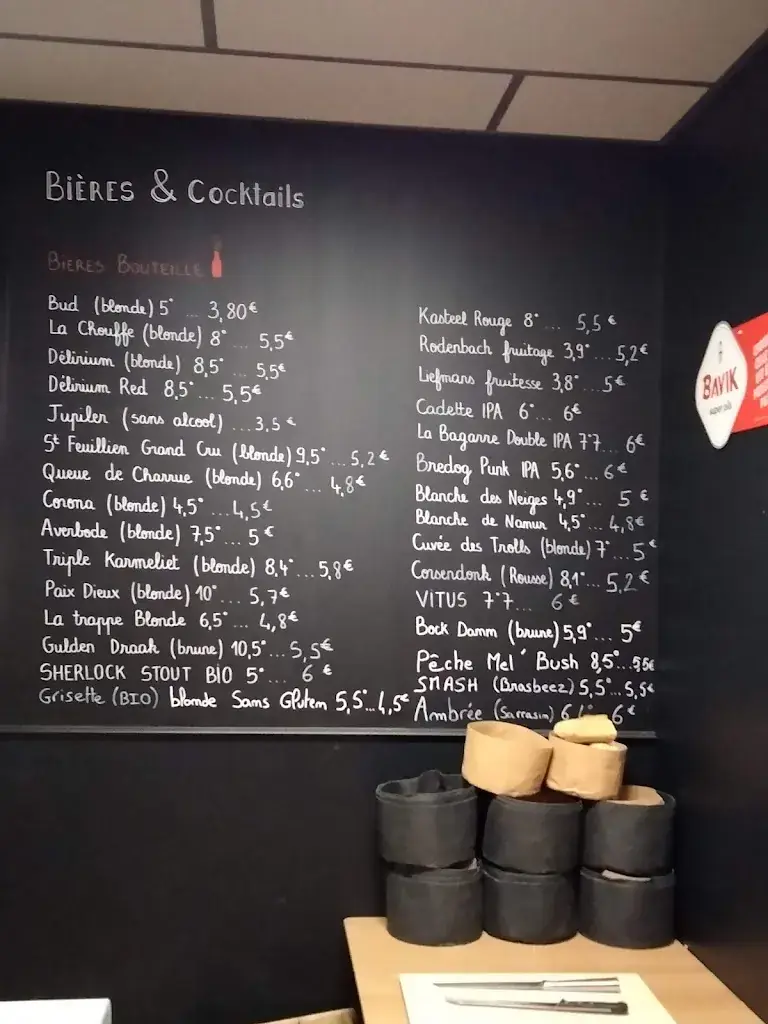 BIÈRES & Cocktails
BIERES BOUTEILLE
Bud (blonde) 5° ... 3,80€
La Chouffe (blonde) 8° ... 5,5€
Délirium (blonde) 8,5° ... 5,5€
Délirium Red 8,5° ... 5,5€
Jupiler (sans alcool) ... 3,5 €
St Feuillien Grand Cru (blonde) 9,5° ... 5,2€
Queue de Charrue (blonde) 6,6° ... 4,8€
Corona (blonde) 4,5° ... 4,5€
Averbode (blonde) 7,5° ... 5 €
Triple Karmeliet (blonde) 8,4° ... 5,8€
Paix Dieux (blonde) 10° ... 5,7€
La trappe Blonde 6,5° ... 4,8€
Gulden Draak (brune) 10,5° ... 5,5€
SHERLOCK STOUT BIO 5° ... 6 €
Grisette (BIO) blonde Sans Gluten 5,5° ... 4,5€
Kasteel Rouge 8° ... 5,5 €
Rodenbach fruitage 3,9° ... 5,2€
Liefmans fruitesse 3,8° ... 5€
Cadette IPA 6° ... 6€
La Bagarre Double IPA 7°7 ... 6€
Bredog Punk IPA 5,6° ... 6€
Blanche des Neiges 4,9° ... 5 €
Blanche de Namur 4,5° ... 4,8€
Cuvée des Trolls (blonde) 7° ... 5€
Corsendonk (Rousse) 8,1° ... 5,2€
VITUS 7°7 ... 6 €
Bock Damm (brune) 5,9° ... 5€
Pêche Mel' Bush 8,5° ... 5,5€
SMASH (Brasbeez) 5,5° ... 5,5€
Ambrée (Sarrasin) 6 ... 6€
BAVIK
super pils